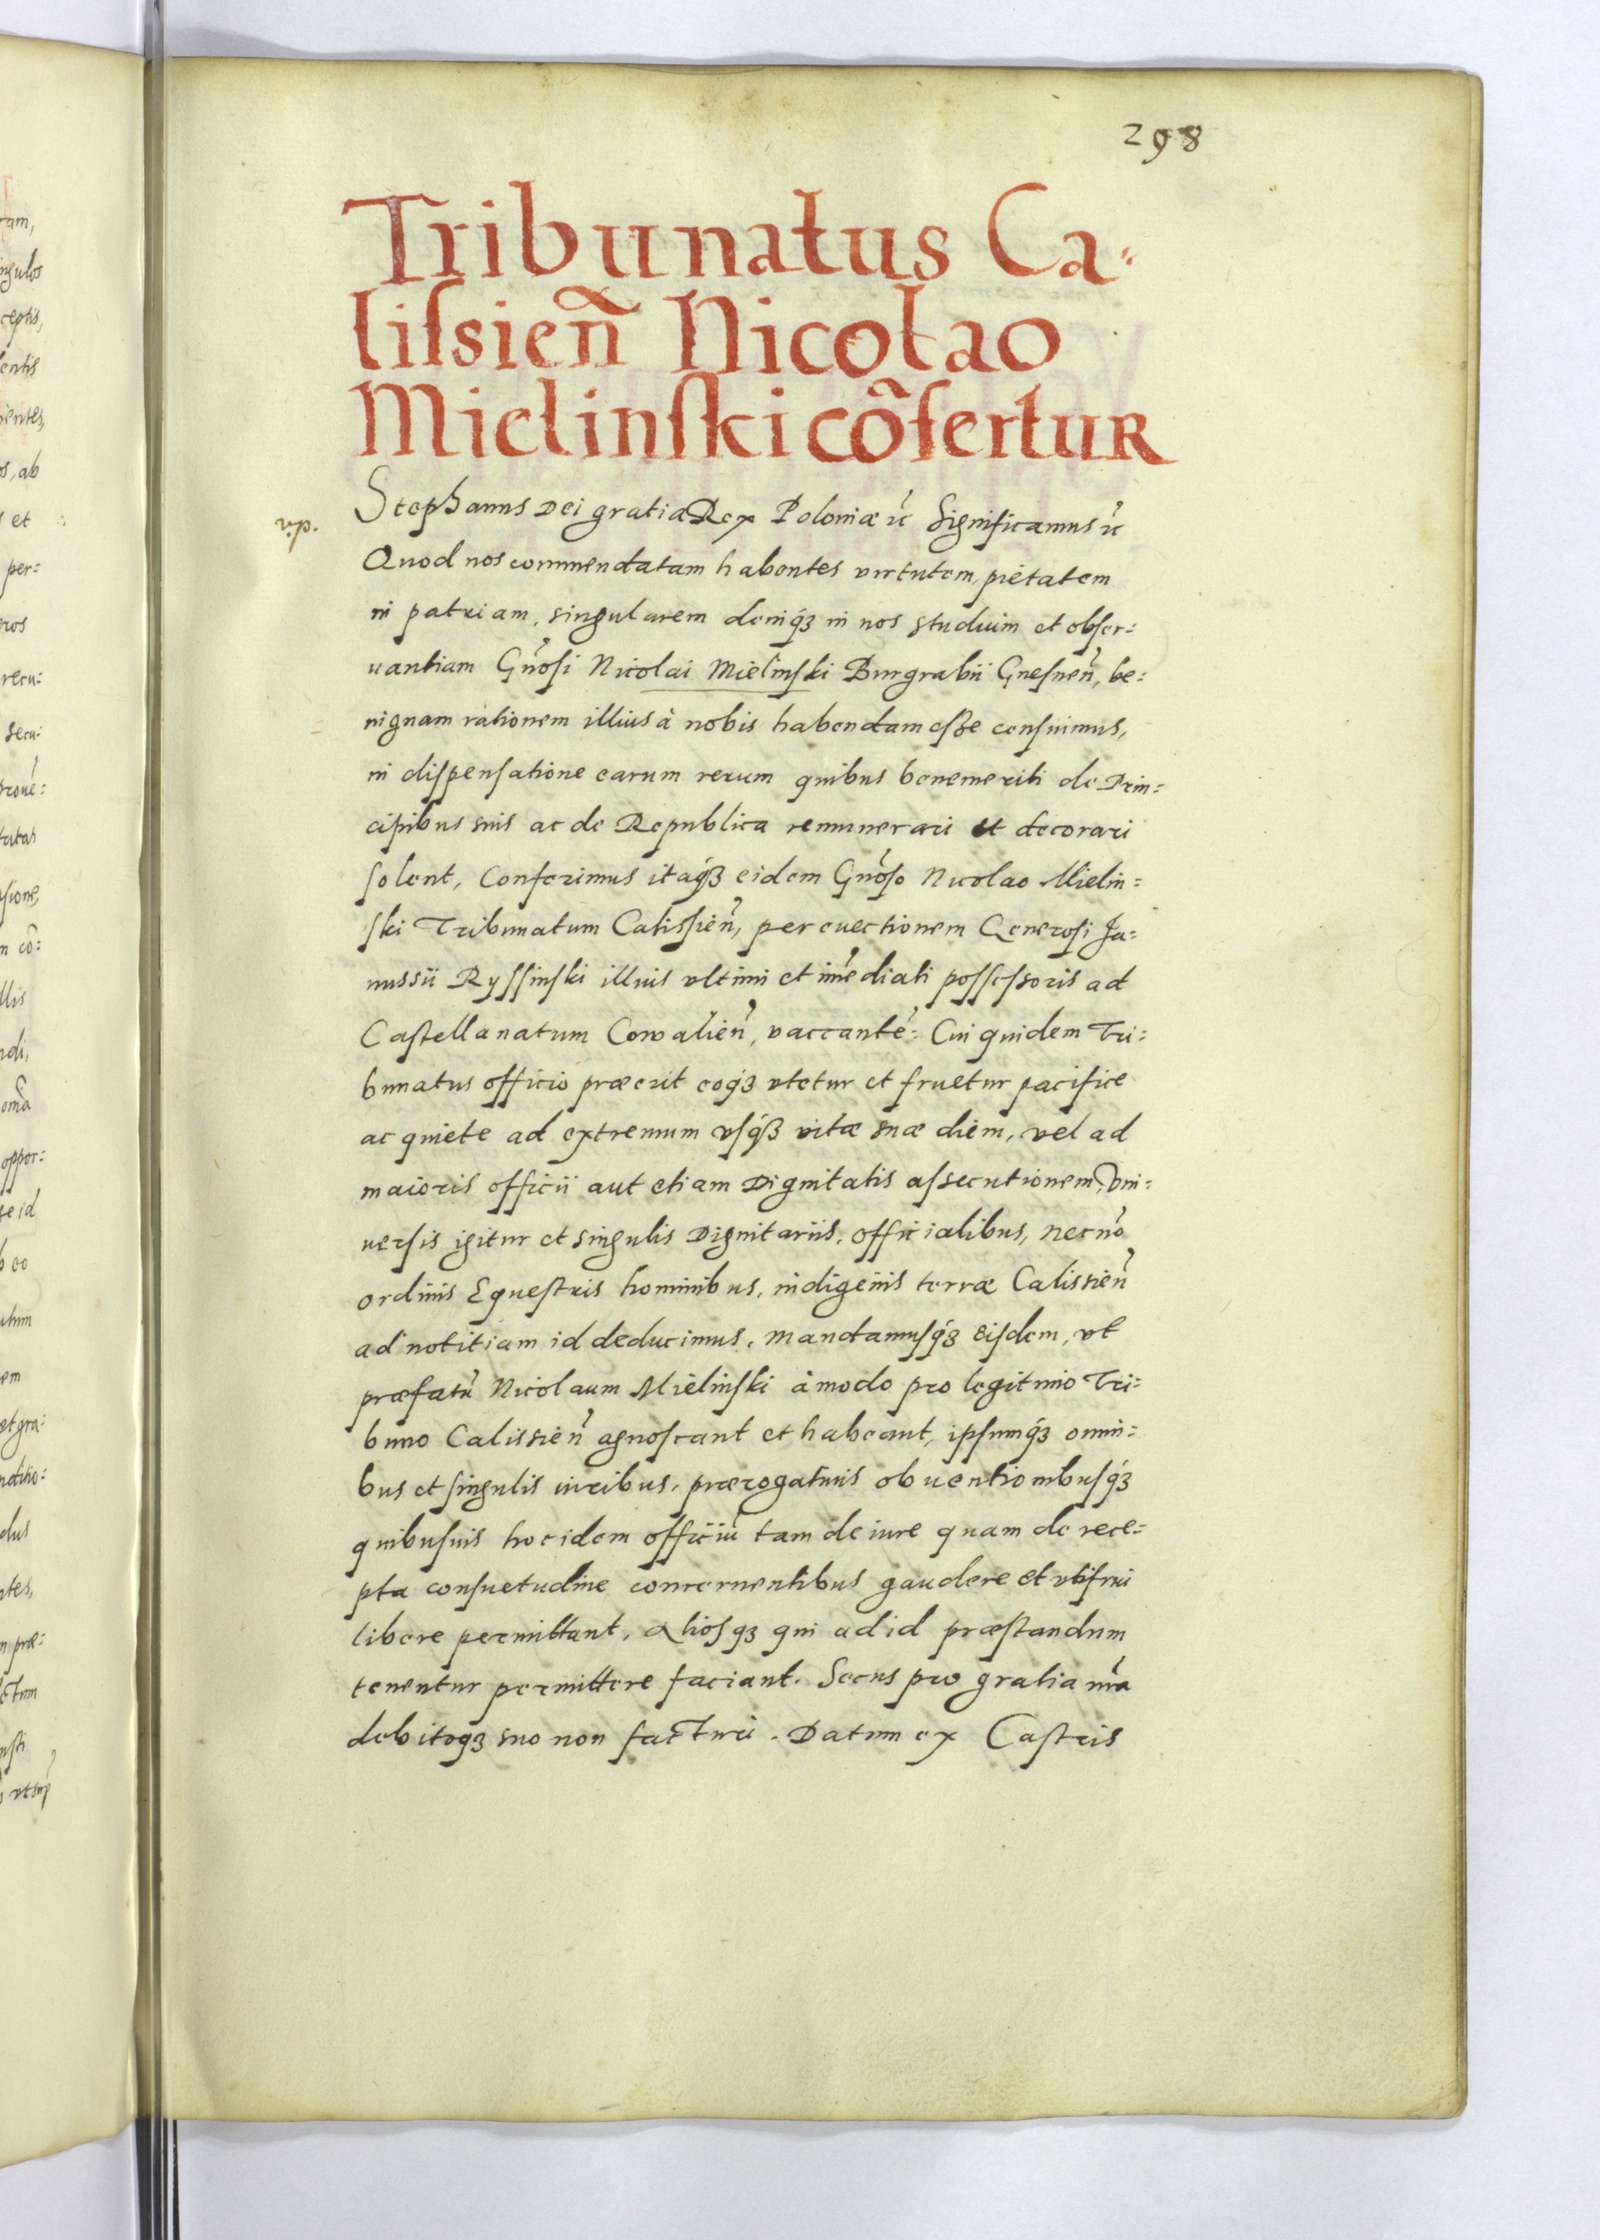 298
Tribunatus Ca-
liſsien̄ Nicolao
Mielinſki cōfertur
Stephanus Dei gratia Rex Poloniæ etc̄ Significamus etc̄
Quod nos commendatam habentes virtutem, pietatem
in patriam, singularem deniq́ꝫ in nos studium et obſer:
uantiam Gn̄osi Nicolai Mielinſki Burgrabii Gneſnen̄, be:
nignam rationem illius à nobis habendam eſße censuimus,
in diſpenſatione earum rerum quibus benemeriti de Prin:
cipibus suis ac de Republica remunerari et decorari
ſolent, Conferimus itaq́ꝫ eidem Gn̄oſo Nicolao Mielin:
ſki Tribunatum Caliſſien̄, per euectionem Generoſi Ja:
nussii Ryſſinſki illius vltimi et im̄ediati poſſeſsoris ad
Caſtellanatum Cowalien̄, vaccantē: Cui quidem Tri:
bunatus officio præerit eoq́ꝫ vtetur et fruetur pacifice
ac quiete ad extremum vſq́ꝫ vitæ suæ diem, vel ad
maioris officii aut etiam Dignitatis aſsecutionem, Vni:
uerſis igitur et singulis Dignitariis, officialibus, necn̄o
ordinis Equeſtris hominibus, indigenis terræ Calissien̄
ad notitiam id deducimus, mandamuſq́ꝫ eiſdem, vt
præfatū Nicolaum Mielinſki àmodo pro legitimo Tri:
buno Calissien̄ agnoſcant et habeant, ipſumq́ꝫ omni:
bus et ſingulis iuribus, prærogatiuis obuentionibuſq́ꝫ
quibuſuis hoc idem officiū tam de iure quam de rece:
pta conſuetudine concernentibus gaudere et vtifrui
libere permittant, alioſqꝫ qui ad id præſtandum
tenentur permittere faciant. Secus pro gratia nr̄a
debitoqꝫ suo non facturi. Datum ex Caſtris